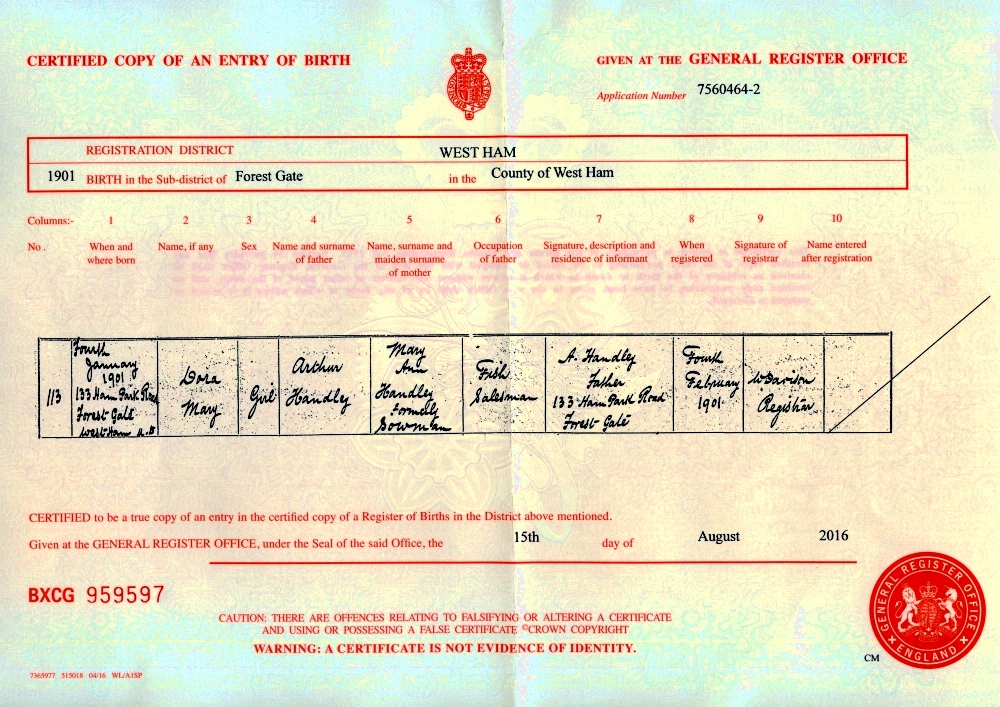 CERTIFIED COPY OF AN ENTRY OF BIRTH
GIVEN AT THE GENERAL REGISTER OFFICE
Application Number 7560464-2
REGISTRATION DISTRICT WEST HAM
1901 BIRTH in the Sub-district of Forest Gate in the County of West Ham
Columns:- 1 2 3 4 5 6 7 8 9 10
No. When and where born
Name, if any
Sex
Name and surname of father
Name, surname and maiden surname of mother
Occupation of father
Signature, description and residence of informant
When registered
Signature of registrar
Name entered after registration
113
Fourth
January
1901
133 Ham Park Road
Forest Gate
West Ham
Dora
Mary
Girl
Arthur
Handley
Mary
Ann
Handley
formerly
Bowman
Fish
Salesman
A. Handley
Father
133 Ham Park Road
Forest Gate
Fourth
February
1901
W Davison
Registrar
CERTIFIED to be a true copy of an entry in the certified copy of a Register of Births in the District above mentioned.
Given at the GENERAL REGISTER OFFICE, under the Seal of the said Office, the 15th day of August 2016
BXCG 959597
CAUTION: THERE ARE OFFENCES RELATING TO FALSIFYING OR ALTERING A CERTIFICATE
AND USING OR POSSESSING A FALSE CERTIFICATE ©CROWN COPYRIGHT
WARNING: A CERTIFICATE IS NOT EVIDENCE OF IDENTITY.
GENERAL REGISTER OFFICE
ENGLAND
CM
7365977 515018 04/16 WL/A1SP